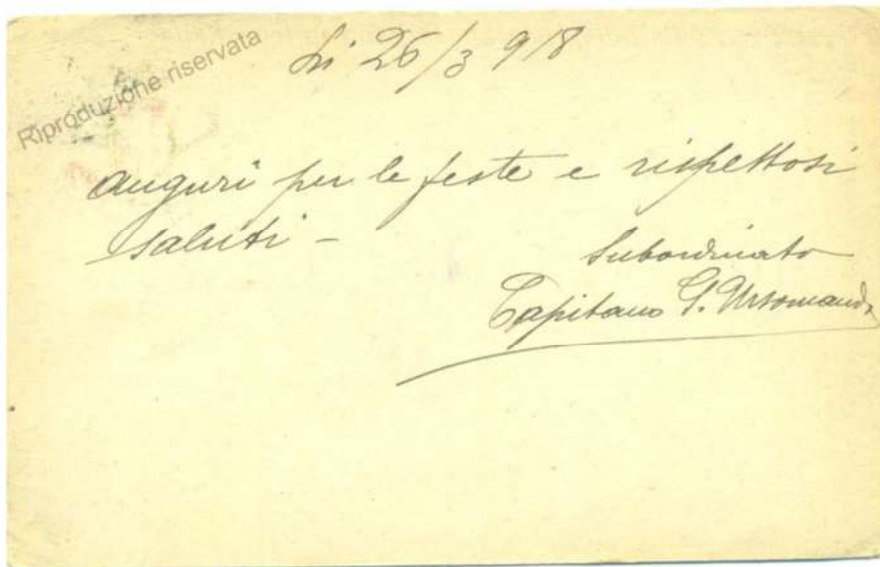 Riproduzione riservata
Lì 26/3 918
auguri per le feste e rispettosi
saluti -
Subordinato
Capitano G. Ursomando